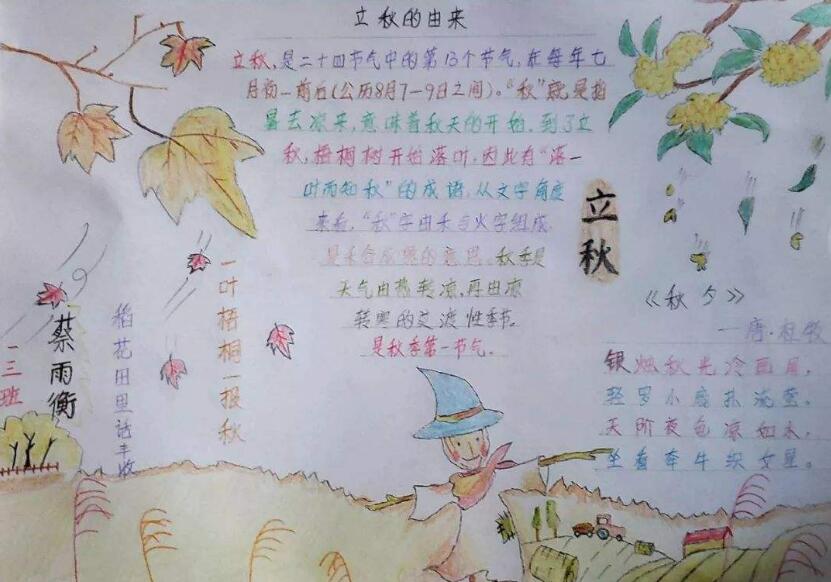 立秋的由来
立秋，是二十四节气中的第13个节气，在每年七
月初一前后(公历8月7—9日之间)。"秋"就是指
暑去凉来，意味着秋天的开始。到了立
秋，梧桐树开始落叶，因此有"落一
叶而知秋"的成语。从文字角度
来看，"秋"字由禾与火字组成，
是禾谷成熟的意思。秋季是
天气由热转凉，再由凉
转寒的交渡性季节。
是秋季第一节气。
立秋
《秋夕》
—唐·杜牧
银烛秋光冷画屏，
轻罗小扇扑流萤。
天阶夜色凉如水，
坐看牵牛织女星。
一叶梧桐一报秋
稻花田里话丰收
蔡雨衡
一三班